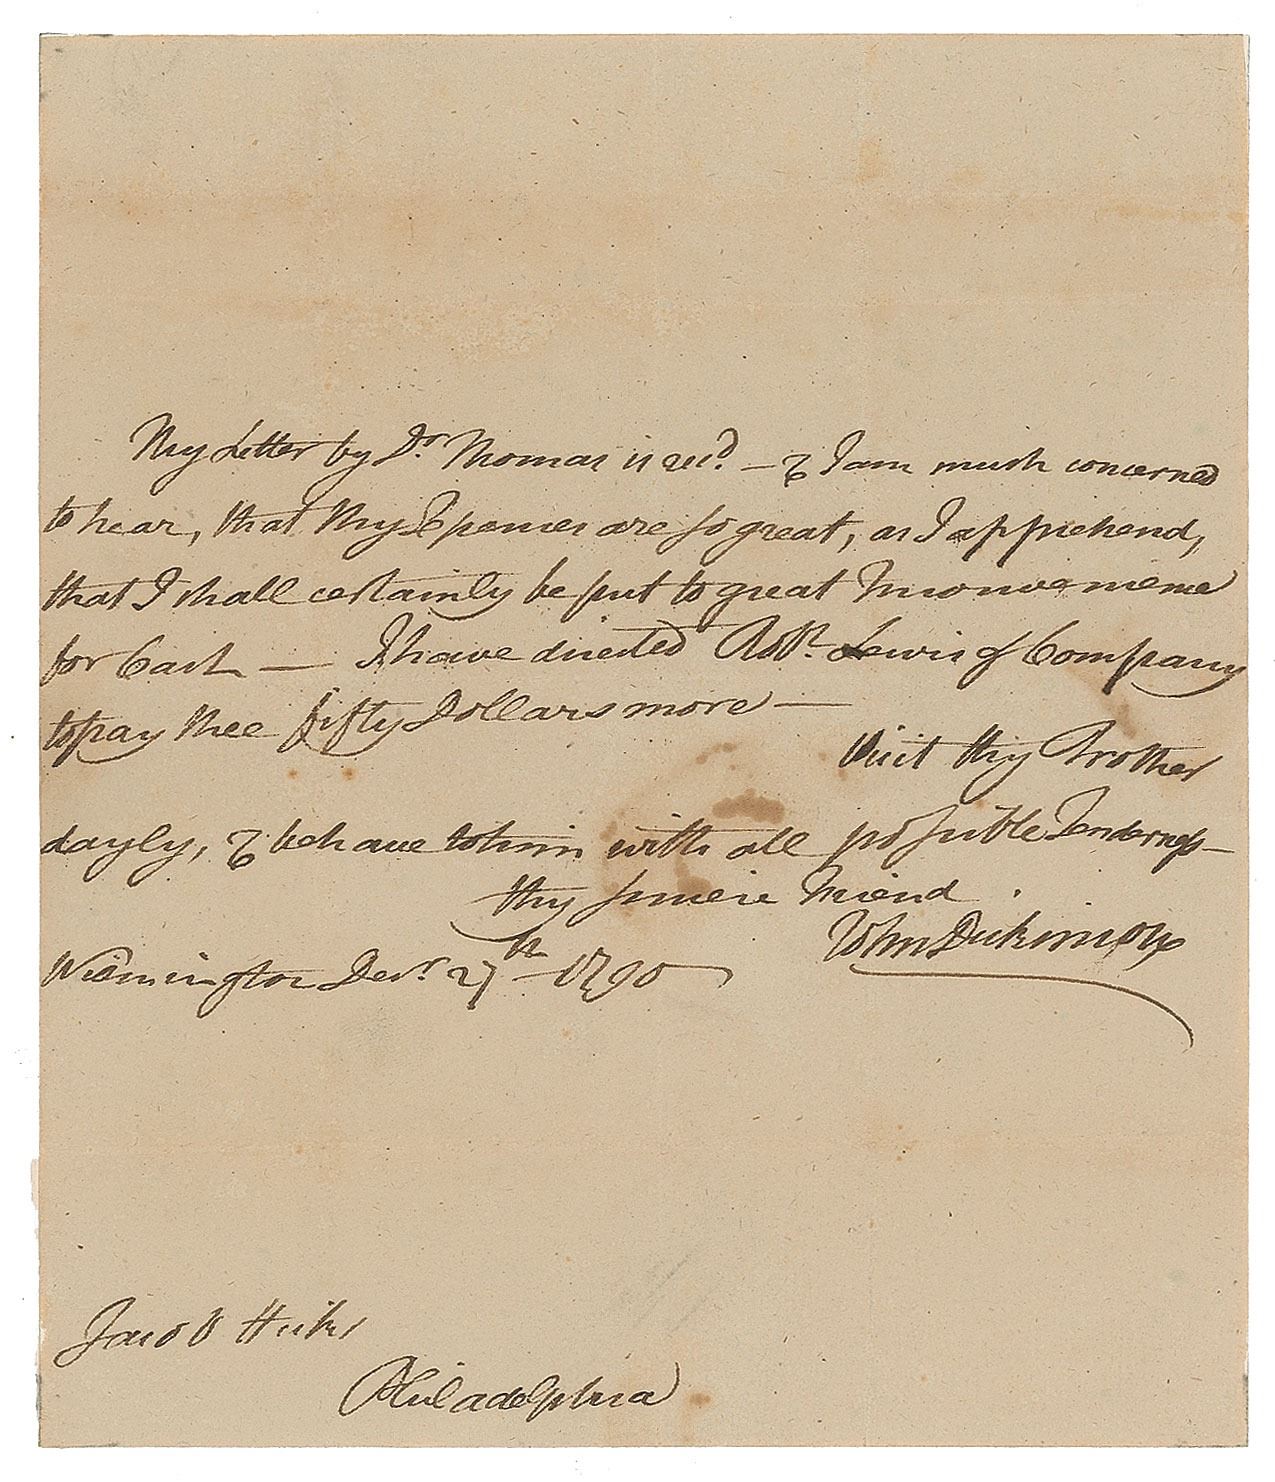 My Letter by Dr. Thomas is recd. — & I am much concerned
to hear, that thy Expences are so great, as I apprehend,
that I shall certainly be put to great Inconvenience
for Cash — I have directed Robt. Lewis & Company
to pay thee fifty Dollars more —
Visit thy Brother
dayly, & behave to him with all possible Tenderness —
thy sincere Friend
John Dickinson
Wilmington Decr. 27th 1790
Jacob Hicks
Philadelphia